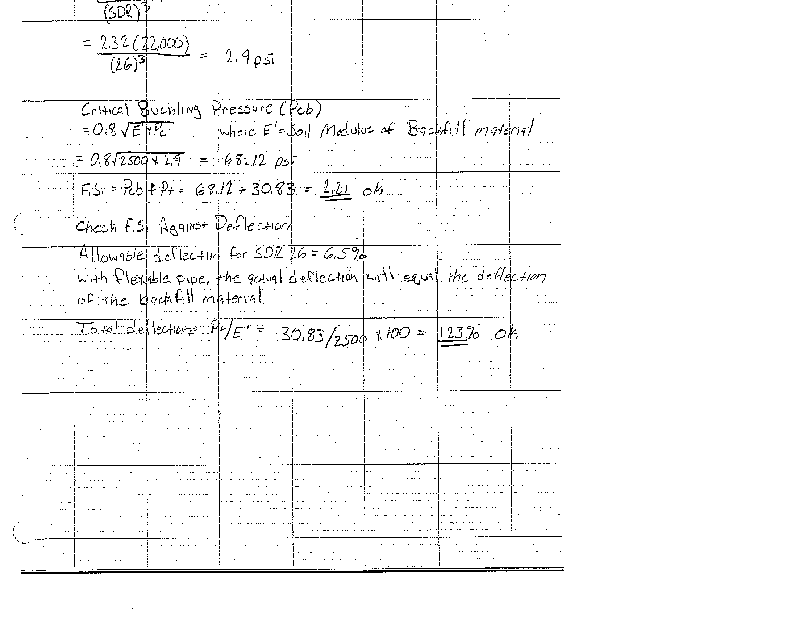 (SDR)³
= 2.32(22,000) / (26)³ = 2.9 psi
Critical Buckling Pressure (Pcb)
= 0.8 √E'×Pc where E' = Soil Modulus of Backfill material
= 0.8√2500 × 2.9 = 68.12 psi
F.S. = Pcb ÷ Pt = 68.12 ÷ 30.83 = 2.21 OK
Check F.S. Against Deflection
Allowable deflection for SDR 26 = 6.5%
with flexible pipe, the actual deflection will equal the deflection
of the backfill material
Total deflection = Pt/E' = 30.83/2500 × 100 = 1.23% OK